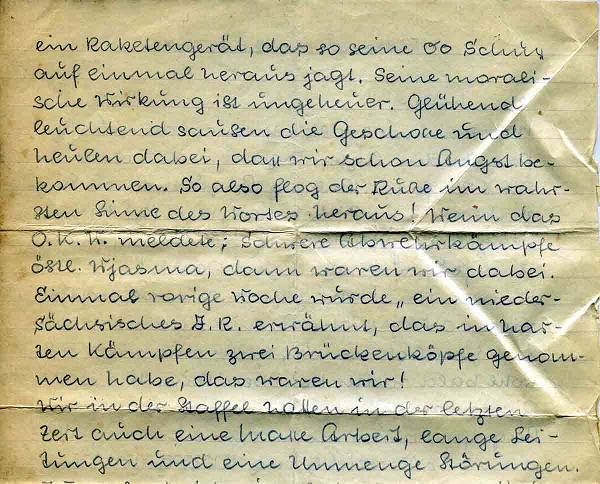 ein Raketengerät, das so seine 60 Schuß
auf einmal heraus jagt. Seine morali-
sche Wirkung ist ungeheuer. Glühend
leuchtend sausen die Geschosse und
heulen dabei, daß wir schon Angst be-
kommen. So also flog der Ruße im wahr-
sten Sinne des Wortes heraus! Wenn das
O.K.W. meldete; schwere Abwehrkämpfe
östl. Wjasma, dann waren wir dabei.
Einmal vorige Woche wurde „ ein nieder-
sächsisches J.R. erwähnt, das in har-
ten Kämpfen zwei Brückenköpfe genom-
men habe, das waren wir!
Wir in der Staffel hatten in der letzten
Zeit auch eine Masse Arbeit, lange Lei-
tungen und eine Unmenge Störungen.